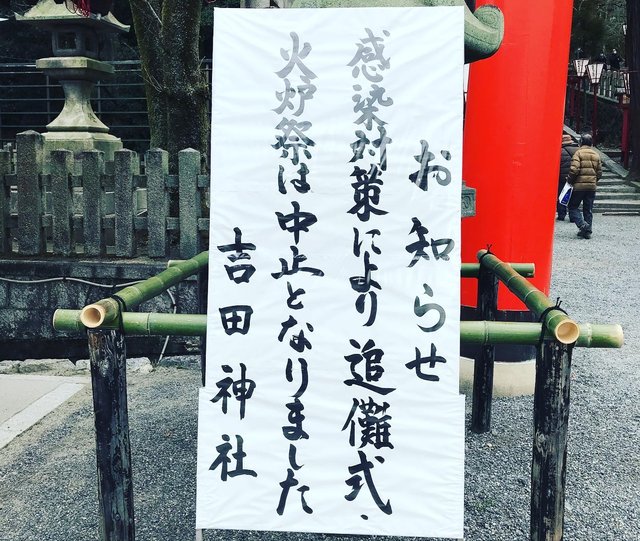 お知らせ
感染対策により追儺式・
火炉祭は中止となりました
吉田神社